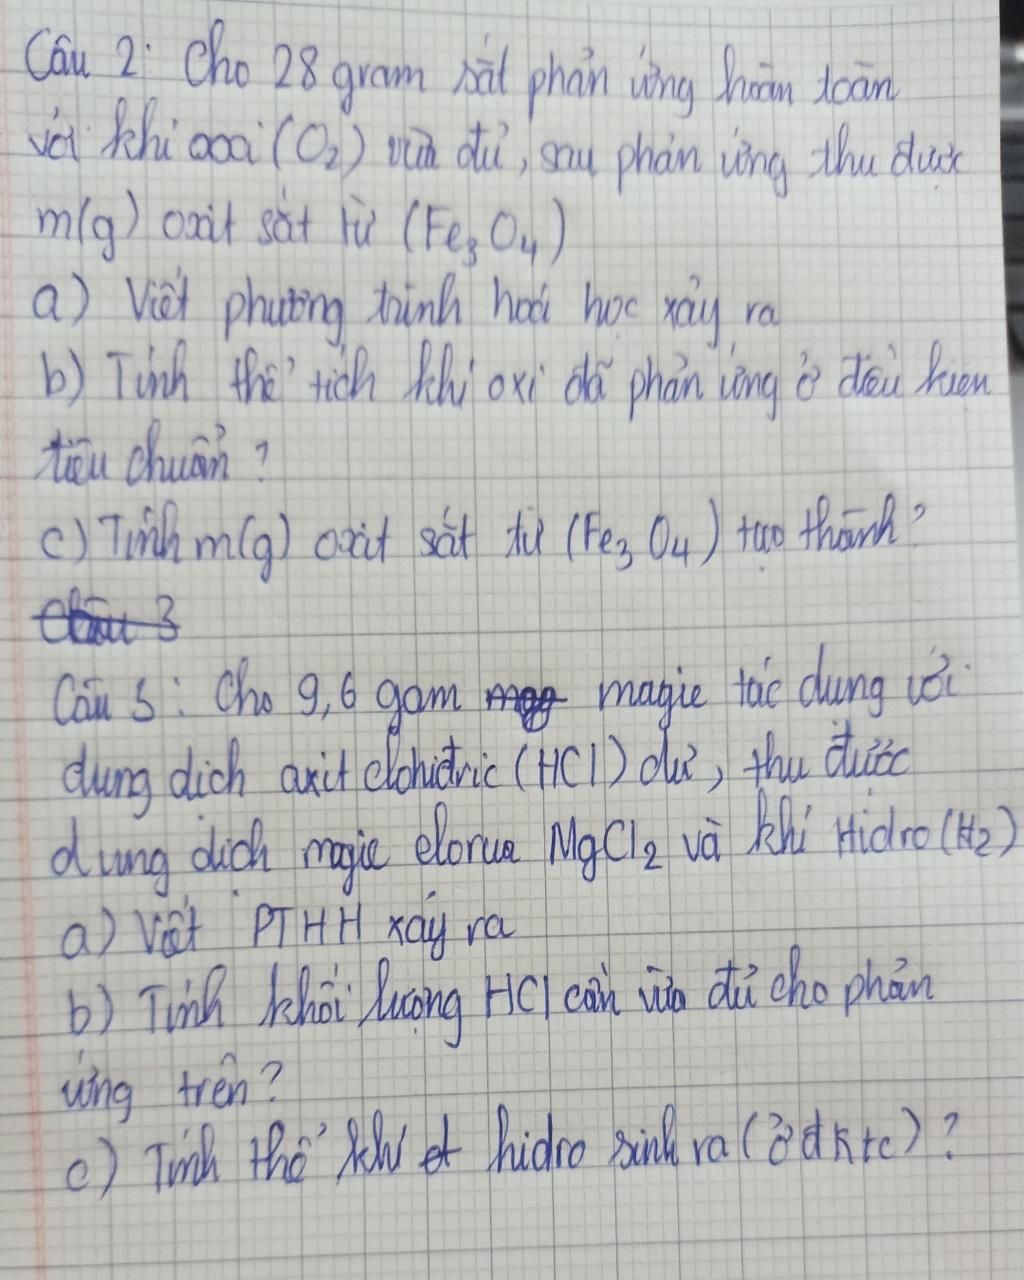 Câu 2: Cho 28 gram sắt phản ứng hoàn toàn
với khí oxi (O₂) vừa đủ, sau phản ứng thu được
m(g) oxit sắt từ (Fe₃O₄)
a) Viết phương trình hoá học xảy ra
b) Tính thể tích khí oxi đã phản ứng ở điều kiện
tiêu chuẩn?
c) Tính m(g) oxit sắt từ (Fe₃O₄) tạo thành?
Câu 3
Câu 3: Cho 9,6 gam magie tác dụng với
dung dịch axit clohiđric (HCl) dư, thu được
dung dịch magie clorua MgCl₂ và khí Hidro (H₂)
a) Viết PTHH xảy ra
b) Tính khối lượng HCl cần vừa đủ cho phản
ứng trên?
c) Tính thể khí hidro sinh ra (ở đktc)?